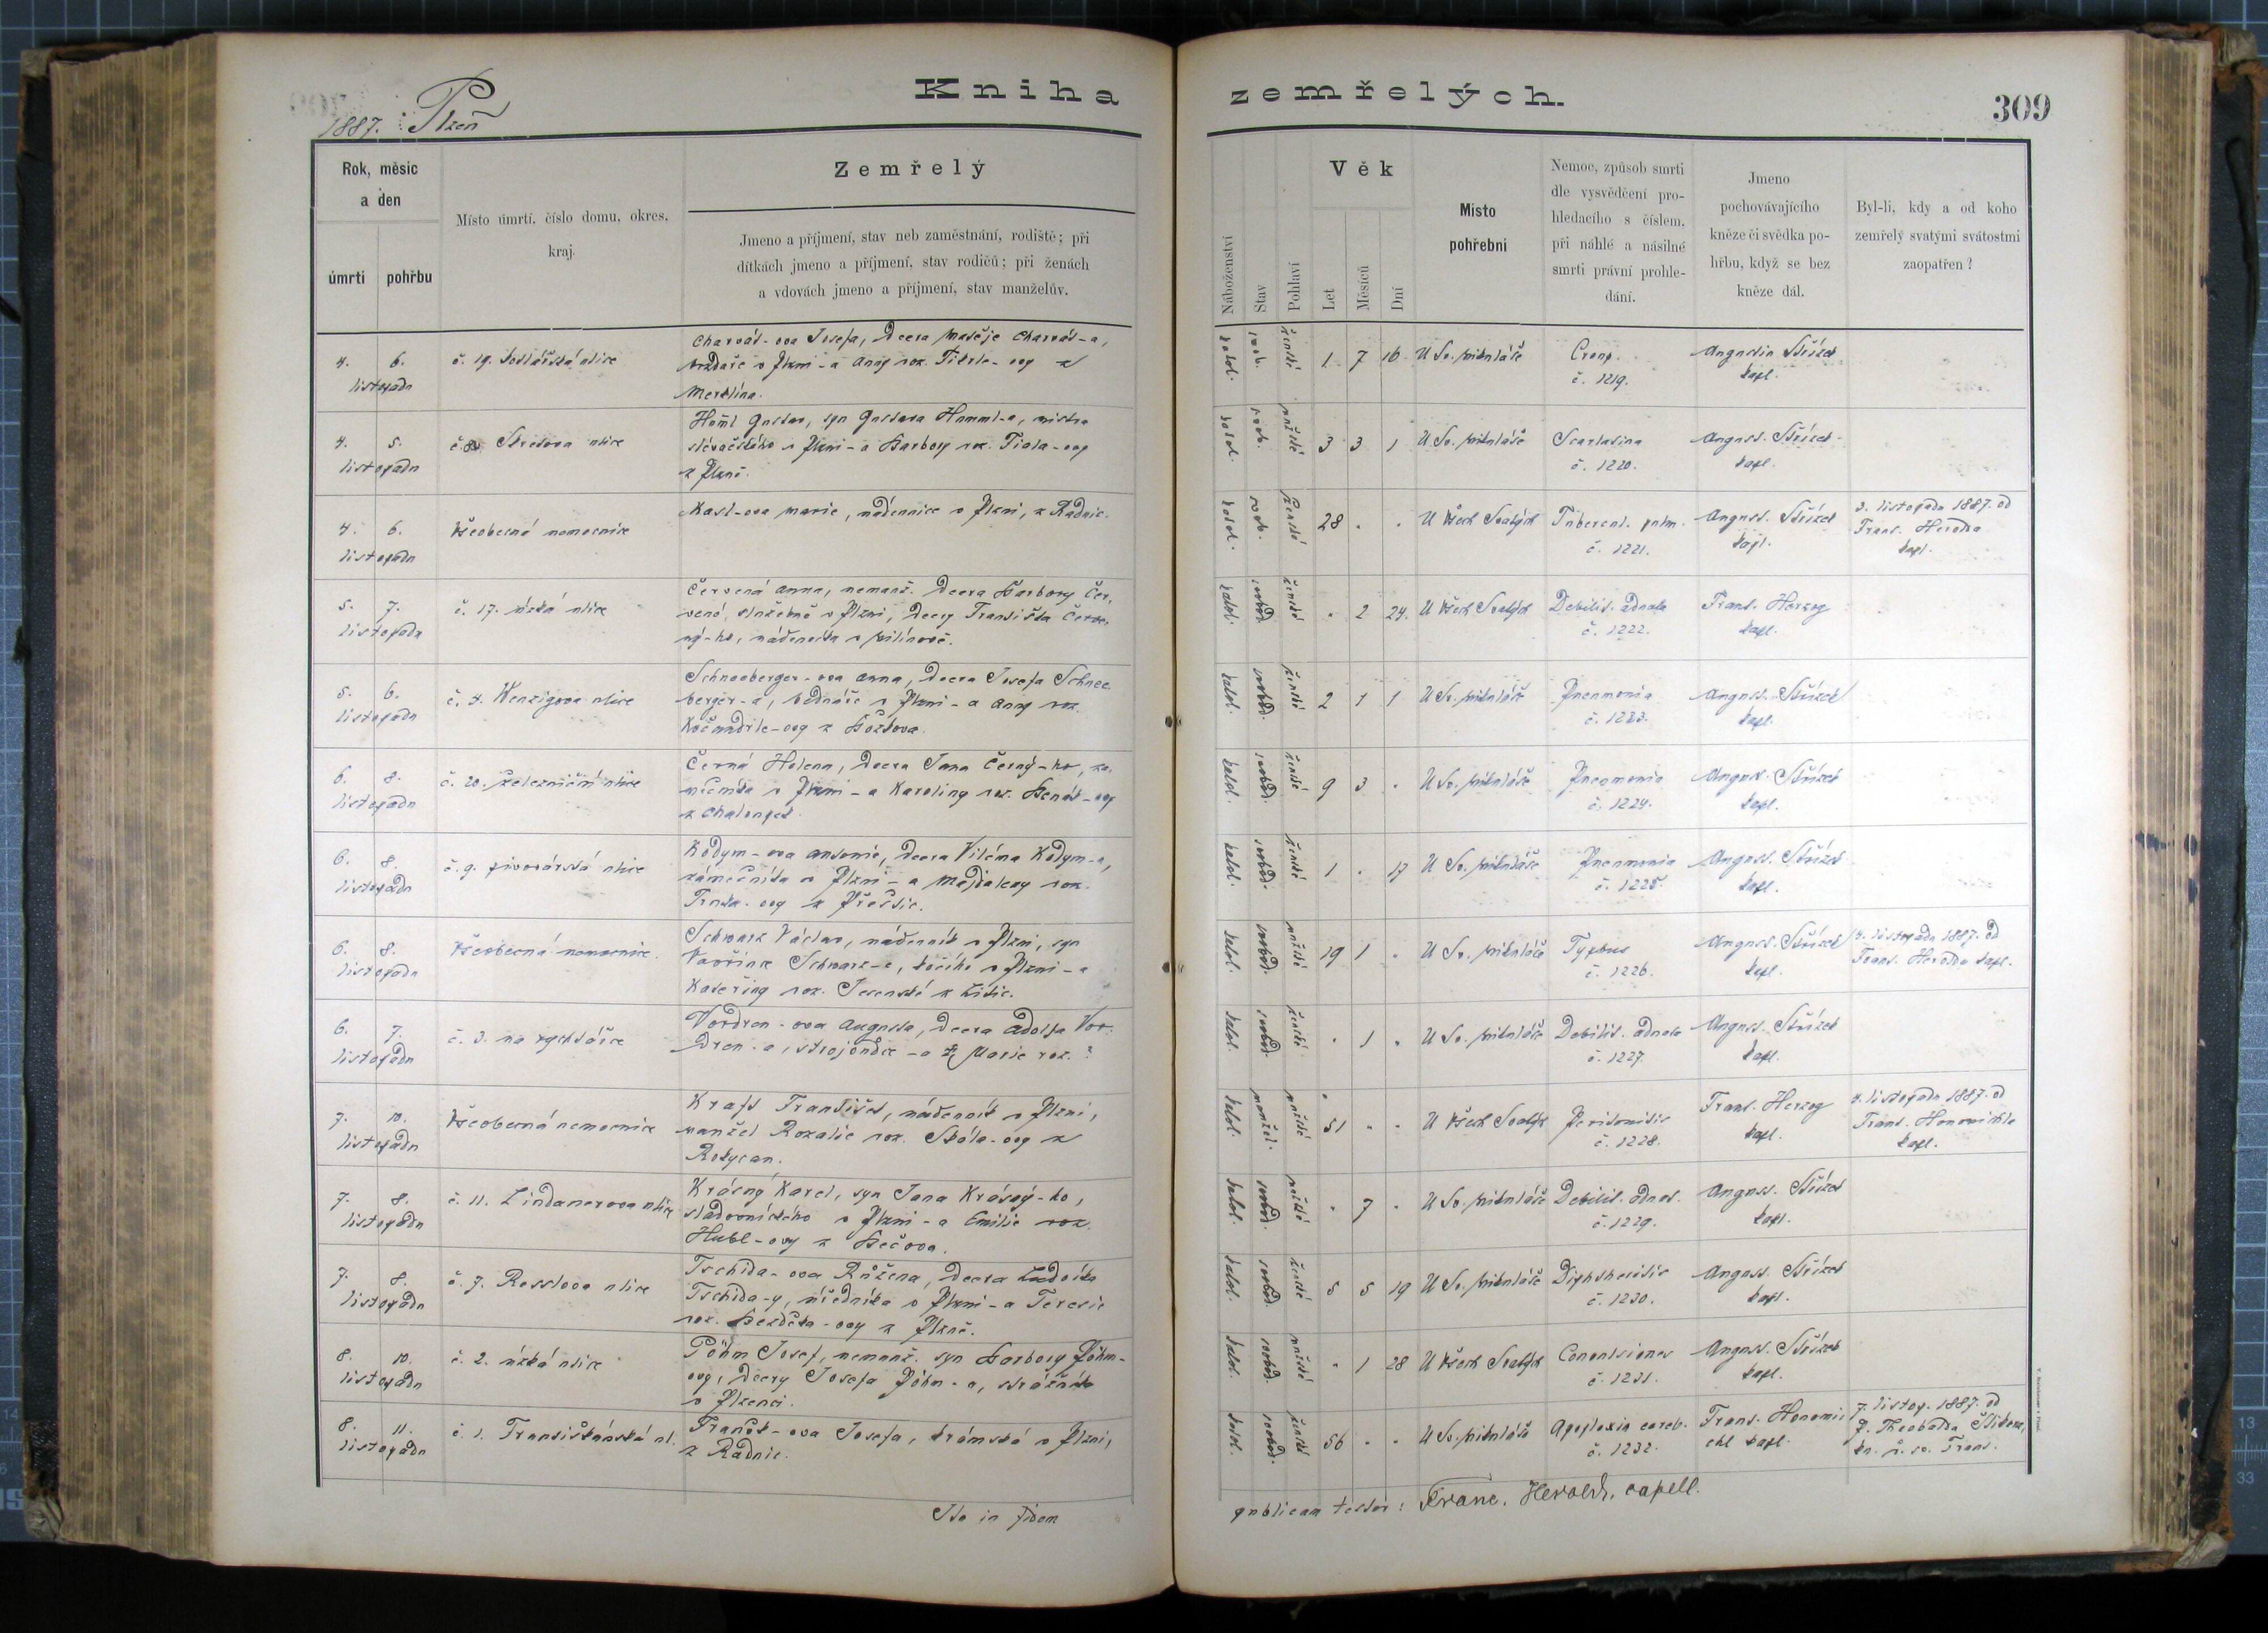 Kniha
zemřelých.
309
1887. Plzeň
Rok, měsíc
a den
úmrtí
pohřbu
Místo úmrtí, číslo domu, okres,
kraj.
Zemřelý
Jmeno a příjmení, stav neb zaměstnání, rodiště; při
dítkách jmeno a příjmení, stav rodičů; při ženách
a vdovách jmeno a příjmení, stav manželův.
Náboženství
Stav
Pohlaví
Věk
Let
Měsíců
Dní
Místo
pohřební
Nemoc, způsob smrti
dle vysvědčení pro-
hledacího s číslem,
při náhlé a násilné
smrti právní prohle-
dání.
Jmeno
pochovávajícího
kněze či svědka po-
hřbu, když se bez
kněze dál.
Byl-li, kdy a od koho
zemřelý svatými svátostmi
zaopatřen?
4. 6.
listopadu
č. 19. ulice
Charvát-ova Josefa, dcera Matěje Charvát-a,
v Plzni - a Anny roz. z
Merklína.
katol. svob. ženské 1 7 16 U Sv. Mikuláše
Croup.
č. 1219.
Augustin Střízek
kapl.
4. 5.
listopadu
ulice
Gustav, syn Gustava mistra
slévačského v Plzni - a Barbory roz. Fiala-ovy
z Plzně.
katol. svob. mužské 3 3 1 U Sv. Mikuláše
Scarlatina
č. 1220.
August. Střízek
kapl.
4. 6.
listopadu
Všeobecná nemocnice
Kasl-ova Marie, nádennice v Plzni, z Radnic.
katol. svob. ženské 28 . . U Všech Svatých
Tubercul. pulm.
č. 1221.
August. Střízek
kapl.
3. listopadu 1887. od
Frant. Herolda
kapl.
5. 7.
listopadu
č. 17. úzká ulice
Červená Anna, nemanž. dcera Barbory Čer-
vené, služebné v Plzni, dcery Františka Červe-
ný-ho, nádeníka v
katol. svobod. ženské . 2 24. U Všech Svatých
Debilit. adnata
č. 1222.
Frant. Herzog
kapl.
5. 6.
listopadu
č. 4. Wenzigova ulice
Schneeberger-ova Anna, dcera Josefa Schnee-
berger-a, bednáře v Plzni - a Anny roz.
z
katol. svobod. ženské 2 1 1 U Sv. Mikuláše
Pneumonia
č. 1223.
August. Střízek
kapl.
6. 8.
listopadu
č. 20. železniční ulice
Černá Helena, dcera Jana Černý-ho,
v Plzni - a Karoliny roz.
z
katol. svobod. ženské 9 3 . U Sv. Mikuláše
Pneumonia
č. 1224.
August. Střízek
kapl.
6. 8.
listopadu
č. 9. pivovárská ulice
Kodym-ova Antonie, dcera Viléma Kodym-a,
zámečníka v Plzni - a Majdaleny roz.
Trnka-ovy z Přeštic.
katol. svobod. ženské 1 . 17 U Sv. Mikuláše
Pneumonia
č. 1225.
August. Střízek
kapl.
6. 8.
listopadu
Všeobecná nemocnice.
Schwarz Václav, nádenník v Plzni, syn
Vavřince Schwarz-e, kočího v Plzni - a
Kateřiny roz. Jesenské z Litic.
katol. svobod. mužské 19 1 . U Sv. Mikuláše
Typhus
č. 1226.
August. Střízek
kapl.
4. listopadu 1887. od
Frant. Herolda kapl.
6. 7.
listopadu
č. 3. na rychtářce
Vordren-ova Augusta, dcera Adolfa Vor-
dren-a, strojvůdce - a Marie roz. ?
katol. svobod. ženské . 1 . U Sv. Mikuláše
Debilit. adnata
č. 1227.
August. Střízek
kapl.
7. 10.
listopadu
Všeobecná nemocnice
Kraft František, nádenník v Plzni,
manžel Rozalie roz. Skála-ovy z
Rokycan.
katol. manžel. mužské 51 . . U Všech Svatých
Peritonitis
č. 1228.
Frant. Herzog
kapl.
4. listopadu 1887. od
Frant. Honomichla
kapl.
7. 8.
listopadu
č. 11. Lindauerova ulice
Krásný Karel, syn Jana Krásný-ho,
sladovnického v Plzni - a Emilie roz.
Hubl-ovy z Bečova.
katol. svobod. mužské . 7 . U Sv. Mikuláše
Debilit. adnat.
č. 1229.
August. Střízek
kapl.
7. 8.
listopadu
č. 7. Resslova ulice
Tschida-ova Růžena, dcera Ludvíka
Tschida-y, úředníka v Plzni - a Teresie
roz. Bezděka-ovy z Plzně.
katol. svobod. ženské 5 5 19 U Sv. Mikuláše
Diphtheritis
č. 1230.
August. Střízek
kapl.
8. 10.
listopadu
č. 2. úzká ulice
Pöhm Josef, nemanž. syn Barbory Pöhm-
ovy, dcery Josefa Pöhm-a, strážníka
v Plzenci.
katol. svobod. mužské . 1 28 U Všech Svatých
Convulsiones
č. 1231.
August. Střízek
kapl.
8. 11.
listopadu
č. 1. Františkánská ul.
Franěk-ova Josefa, krámská v Plzni,
z Radnic.
katol. svobod. ženské 56 . . U Sv. Mikuláše
Apoplexia cereb.
č. 1232.
Frant. Honomi-
chl kapl.
7. listop. 1887. od
P. Theobalda
kn. ř. sv. Frant.
Ita in fidem
publicam testor: Franc. Herold, capell.